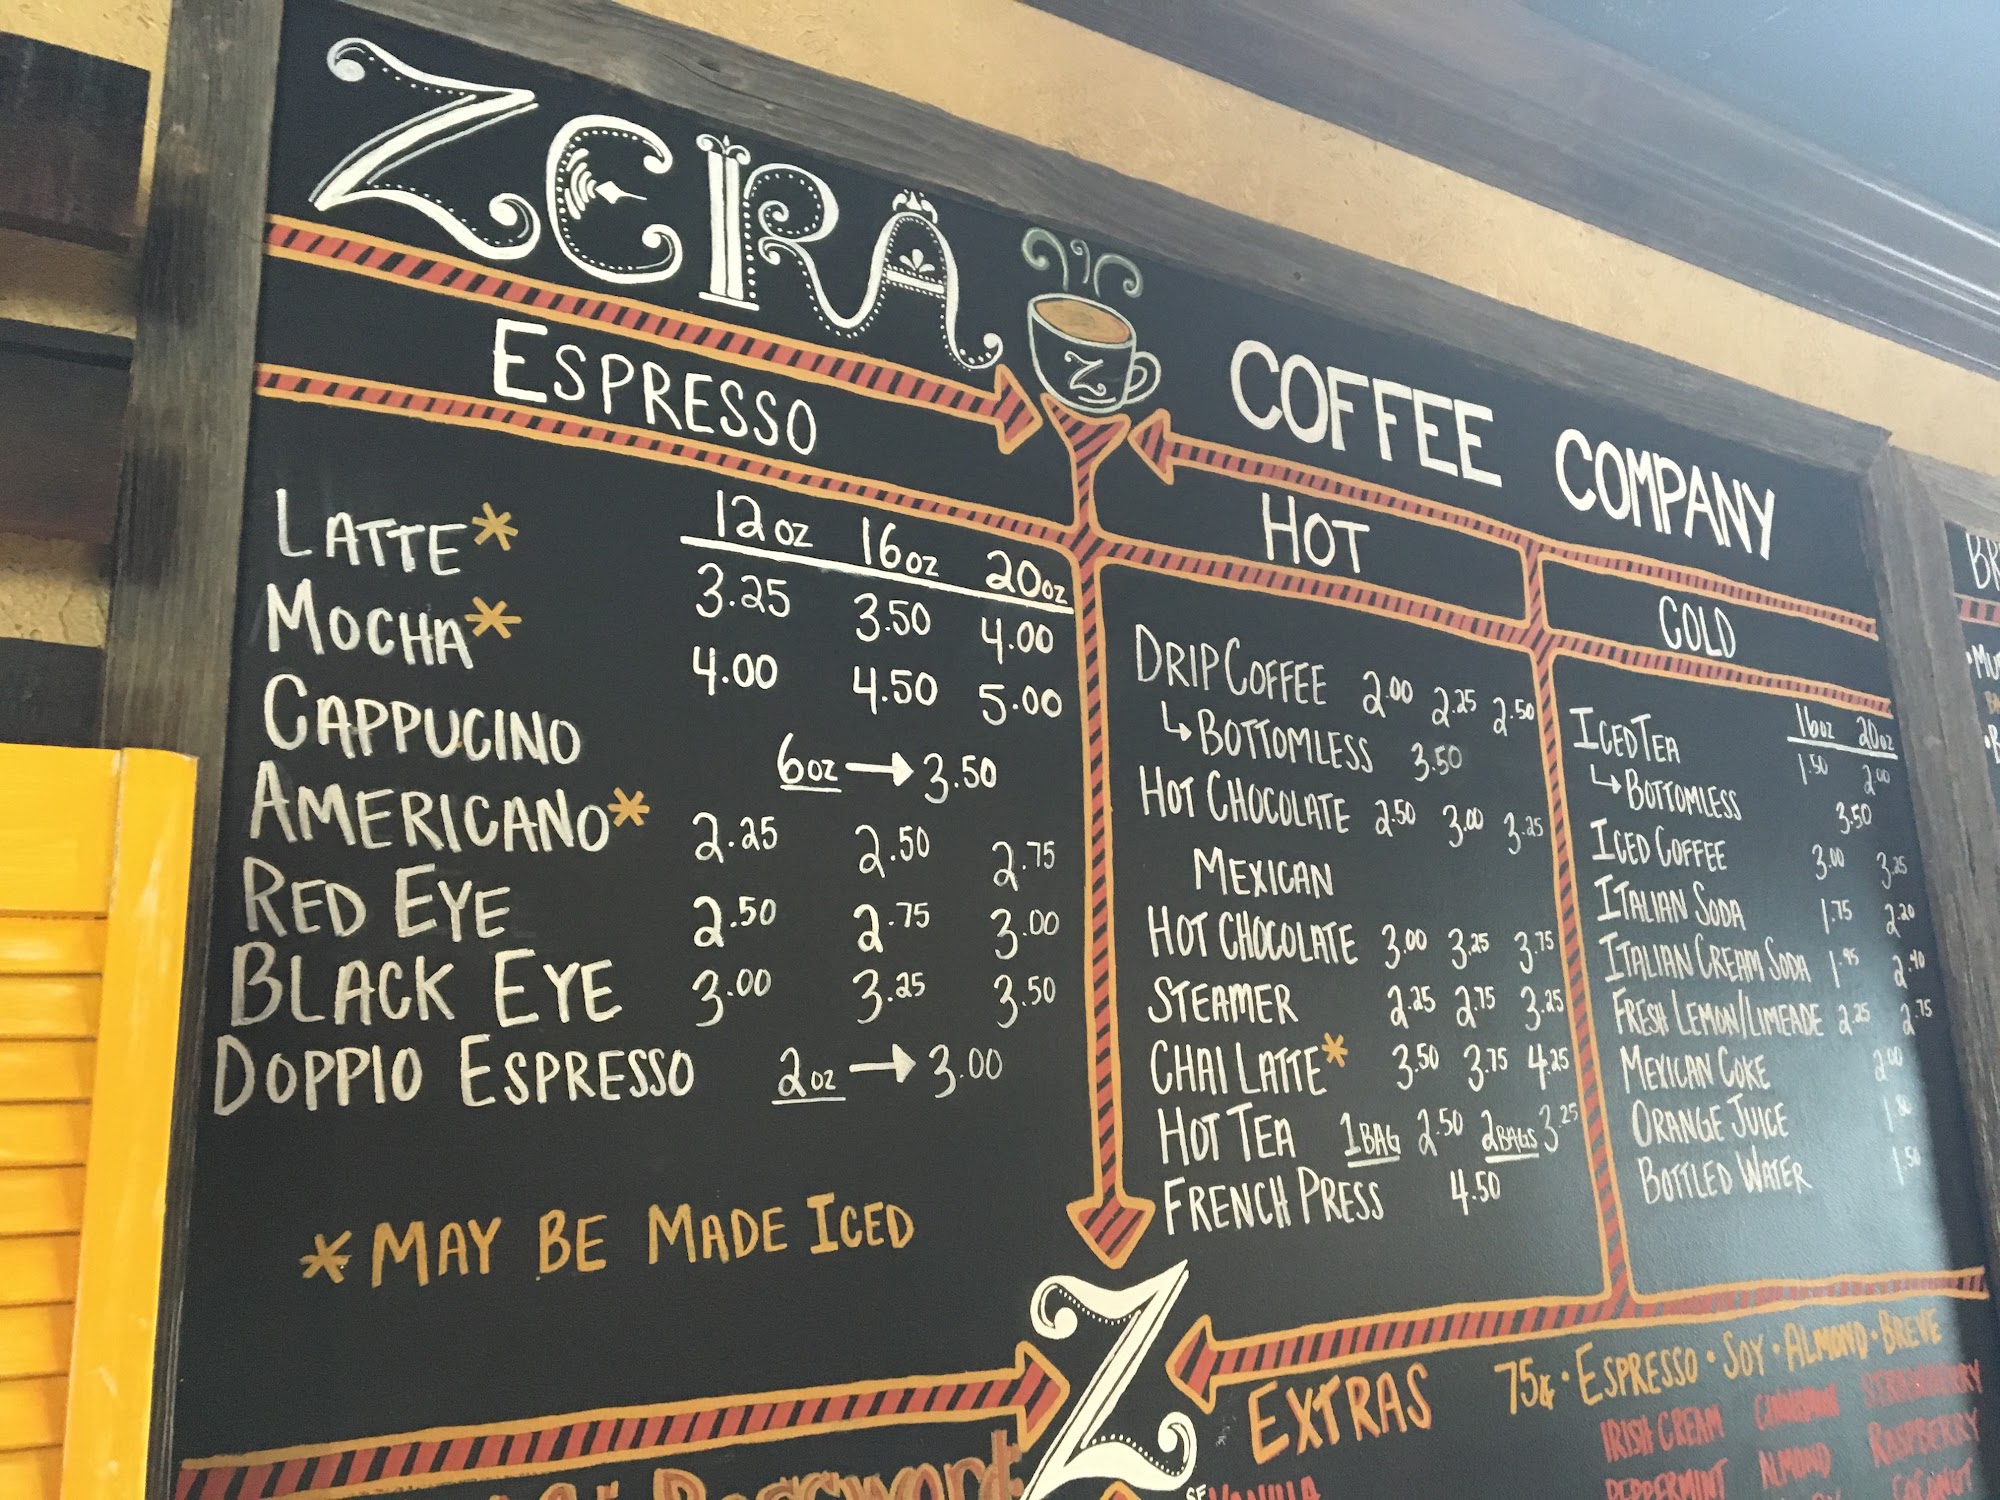 ZERA COFFEE COMPANY
ESPRESSO
12oz 16oz 20oz
LATTE* 3.25 3.50 4.00
MOCHA* 4.00 4.50 5.00
CAPPUCINO 6oz → 3.50
AMERICANO* 2.25 2.50 2.75
RED EYE 2.50 2.75 3.00
BLACK EYE 3.00 3.25 3.50
DOPPIO ESPRESSO 2oz → 3.00
*MAY BE MADE ICED
HOT
DRIP COFFEE 2.00 2.25 2.50
↳ BOTTOMLESS 3.50
HOT CHOCOLATE 2.50 3.00 3.25
MEXICAN
HOT CHOCOLATE 3.00 3.25 3.75
STEAMER 2.25 2.75 3.25
CHAI LATTE* 3.50 3.75 4.25
HOT TEA 1 BAG 2.50 2 BAGS 3.25
FRENCH PRESS 4.50
COLD
16oz 20oz
ICED TEA 1.50 2.00
↳ BOTTOMLESS 3.50
ICED COFFEE 3.00 3.25
ITALIAN SODA 1.75 2.20
ITALIAN CREAM SODA 1.95 2.40
FRESH LEMON/LIMEADE 2.25 2.75
MEXICAN COKE 2.00
ORANGE JUICE 1.80
BOTTLED WATER 1.50
Z
EXTRAS 75¢ • ESPRESSO • SOY • ALMOND • BREVE
IRISH CREAM CINNAMON STRAWBERRY
PEPPERMINT ALMOND RASPBERRY
VANILLA COCONUT